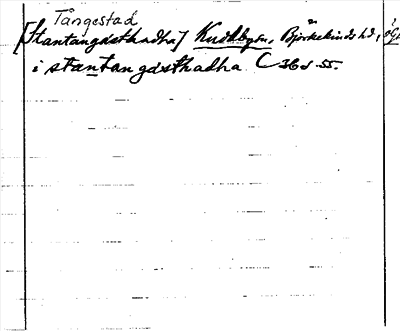 Tångestad
[Stantangæsthadha] Kuddbyn, Björkekinds hd, ÖG
i stantangæsthadha C 36 s. 55.